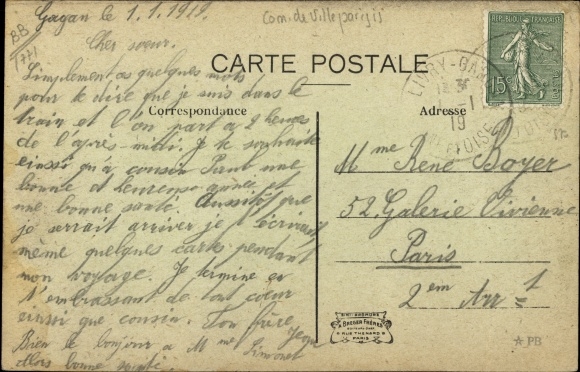 Gagan le 1.1.1919.
Com. de Villeparisis
BB
1771
Cher soeur.
CARTE POSTALE
Correspondance
Adresse
RÉPUBLIQUE FRANÇAISE
15c
LIVRY-GA
1 -1
19
Simplement os quelques mots
pour te dire que je suis dans le
train et l'on part a 2 heures
de l'après-midi. Je te souhaite
einssi qu'à cousin Paul une
bonne et heureuse année et
une bonne santé. Aussitôt que
je serrait arriver je t'écrirais
même quelques carte pendant
mon voyage. Je termine en
t'embrassant de tout coeur
einssi que cousin. Ton frère
Jean
Bien le bonjour a Mme Simonet
Alors bonne santé.
Mme René Boyer
52, Galerie Vivienne
Paris
2em Arrt
BREGER FRÈRES
9 RUE THENARD 9
PARIS
FB